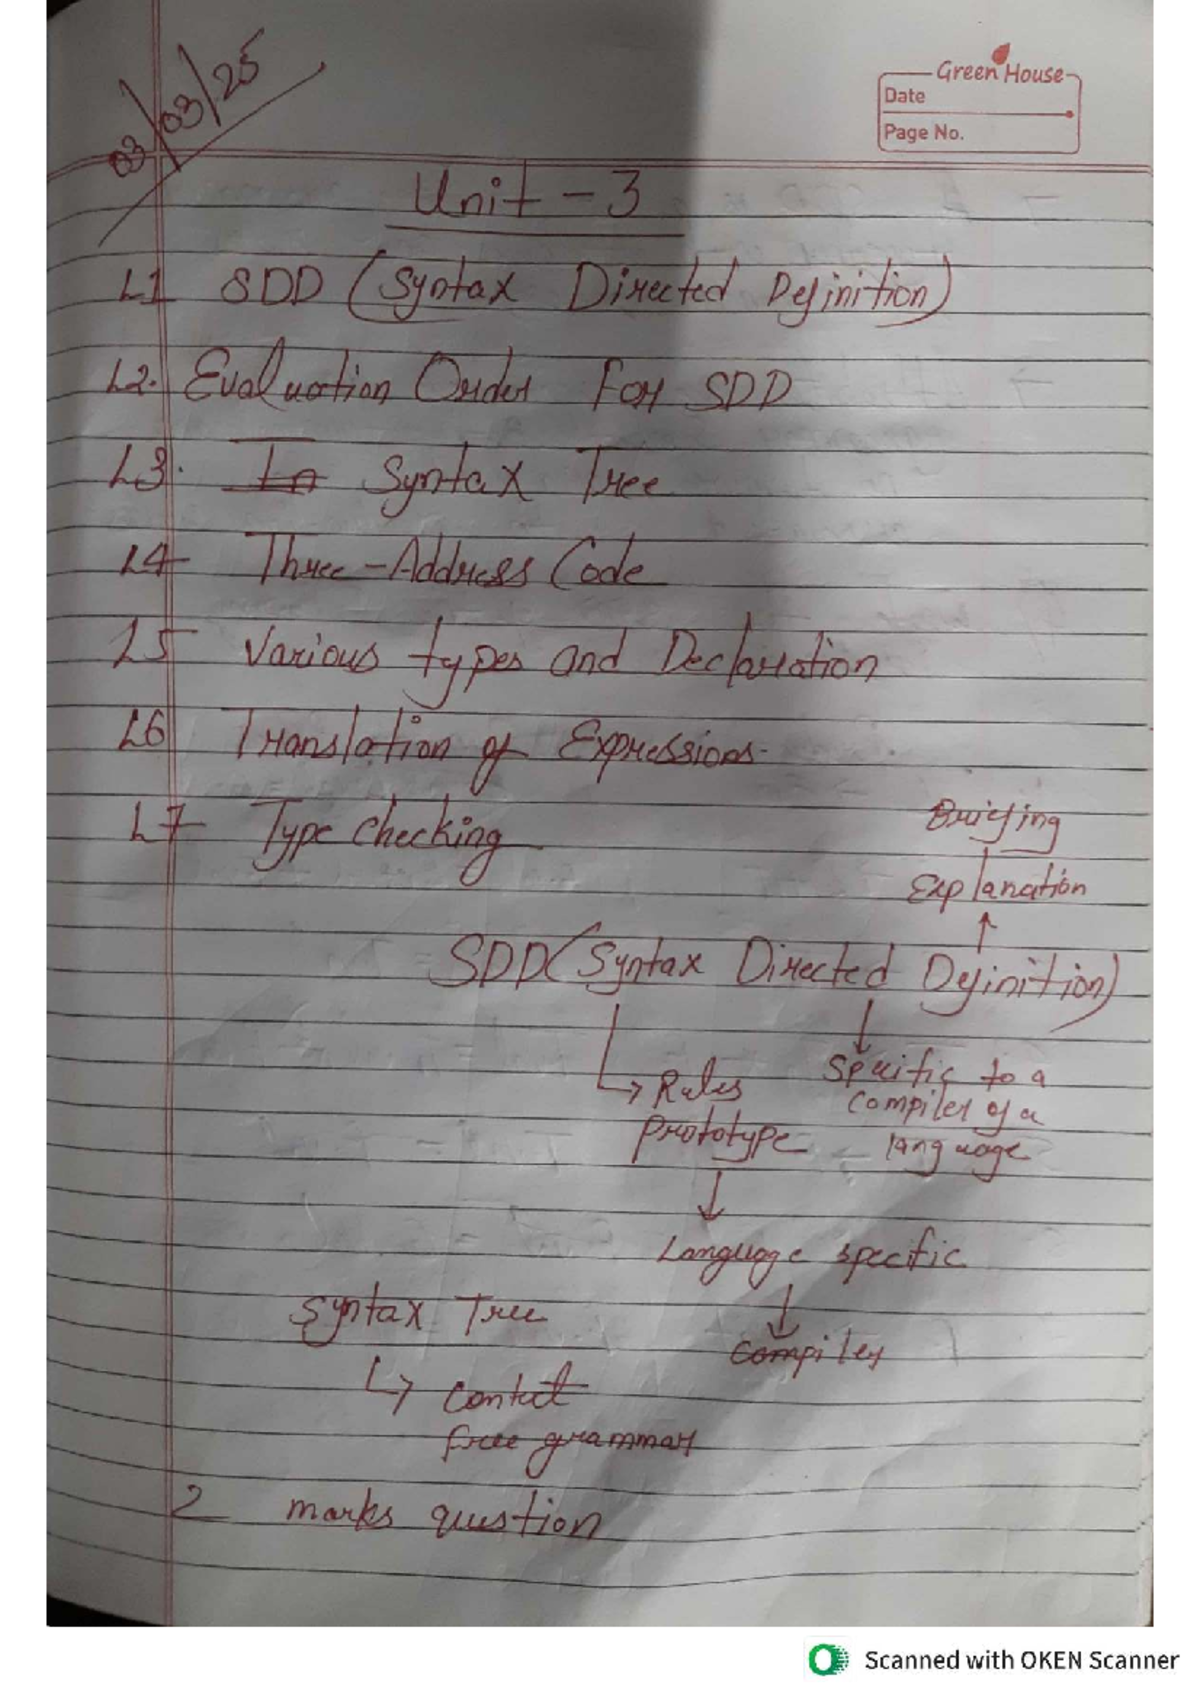 03/03/25
Green House
Date
Page No.
Unit - 3
L1 SDD (Syntax Directed Definition)
L2. Evaluation Order For SDD
L3. In Syntax Tree
L4 Three-Address Code
L5 Various types and Declaration
L6 Translation of Expressions.
L7 Type Checking
Briefing
Explanation
↑
SDD (Syntax Directed Definition)
↓
↳ Rules
prototype
Specific to a
compiler of a
language
↓
Language specific
↓
Compiler
Syntax Tree
↳ Contect
free grammar
2 marks question
Scanned with OKEN Scanner